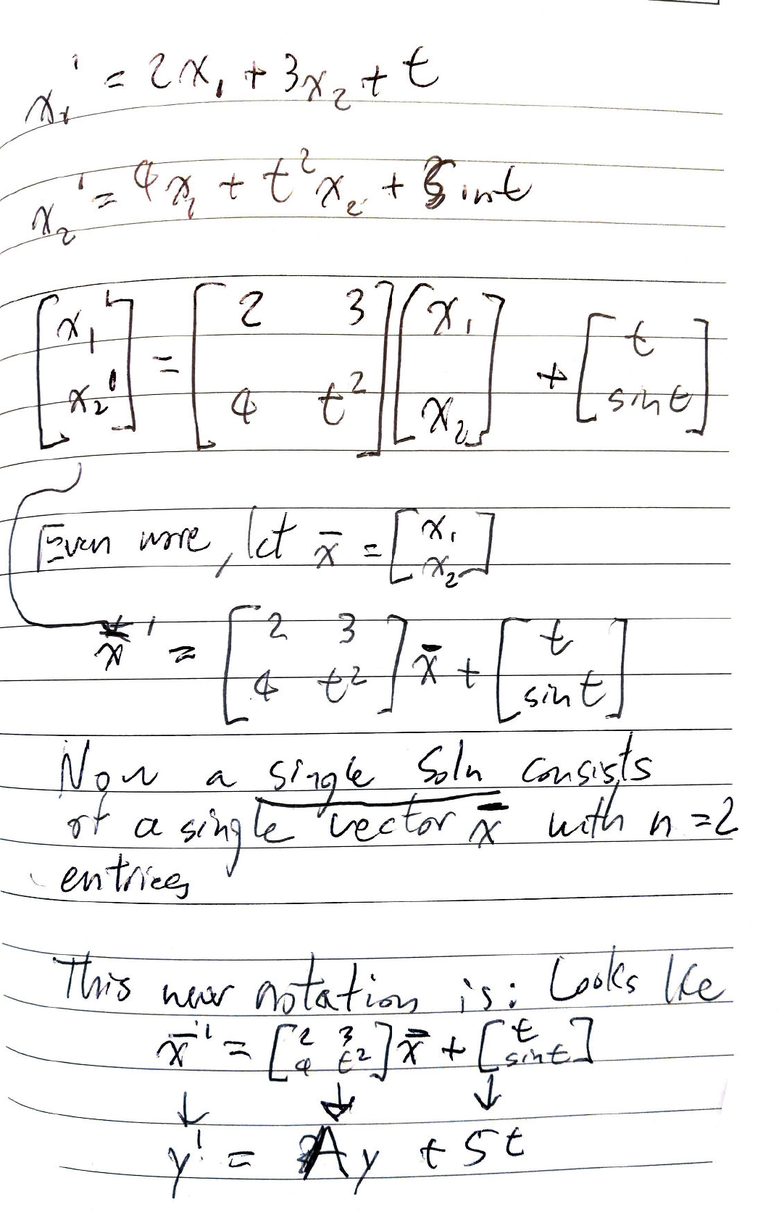 x₁' = 2x₁ + 3x₂ + t
x₂' = 4x₁ + t²x₂ + Sint
[x₁' ; x₂'] = [2 3 ; 4 t²] [x₁ ; x₂] + [t ; sint]
Even more, let x̄ = [x₁ ; x₂]
x̄' = [2 3 ; 4 t²] x̄ + [t ; sint]
Now a single Soln consists
of a single vector x̄ with n = 2
entries
This new notation is: Looks like
x̄' = [2 3 ; 4 t²] x̄ + [t ; sint]
↓ ↓ ↓
y' = Ay + 5t